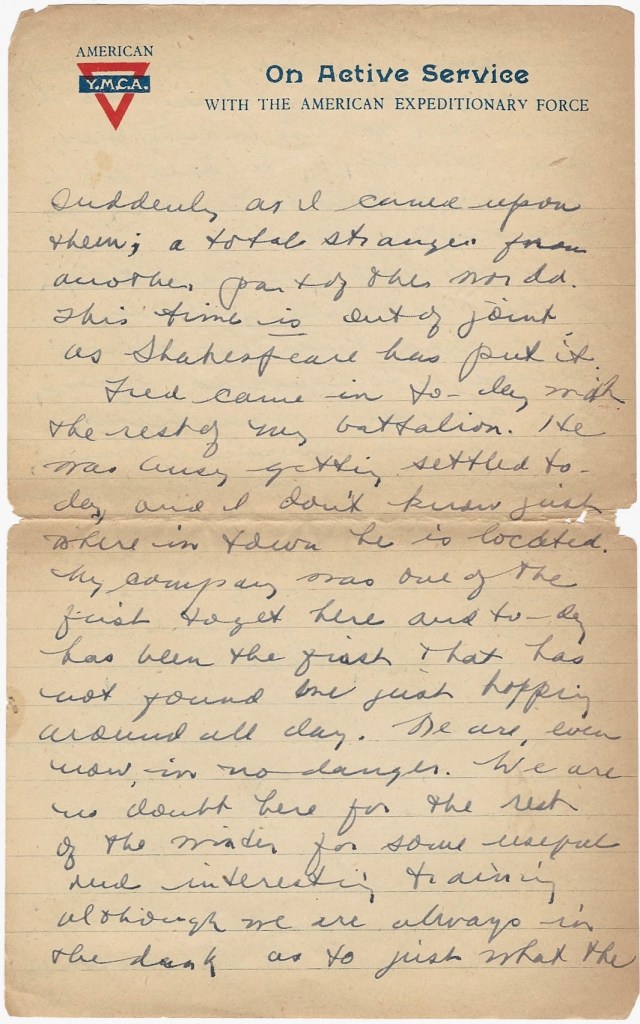 AMERICAN
Y.M.C.A.
On Active Service
WITH THE AMERICAN EXPEDITIONARY FORCE
suddenly as I came upon
them; a total stranger from
another part of the world.
This time is out of joint
as Shakespeare has put it.
Fred came in to-day with
the rest of my battalion. He
was busy getting settled to-
day, and I don't know just
where in town he is located.
My company was one of the
first to get here and to-day
has been the first that has
not found me just hopping
around all day. We are, even
now, in no danger. We are
no doubt here for the rest
of the winter for some useful
and interesting training
although we are always in
the dark as to just what the